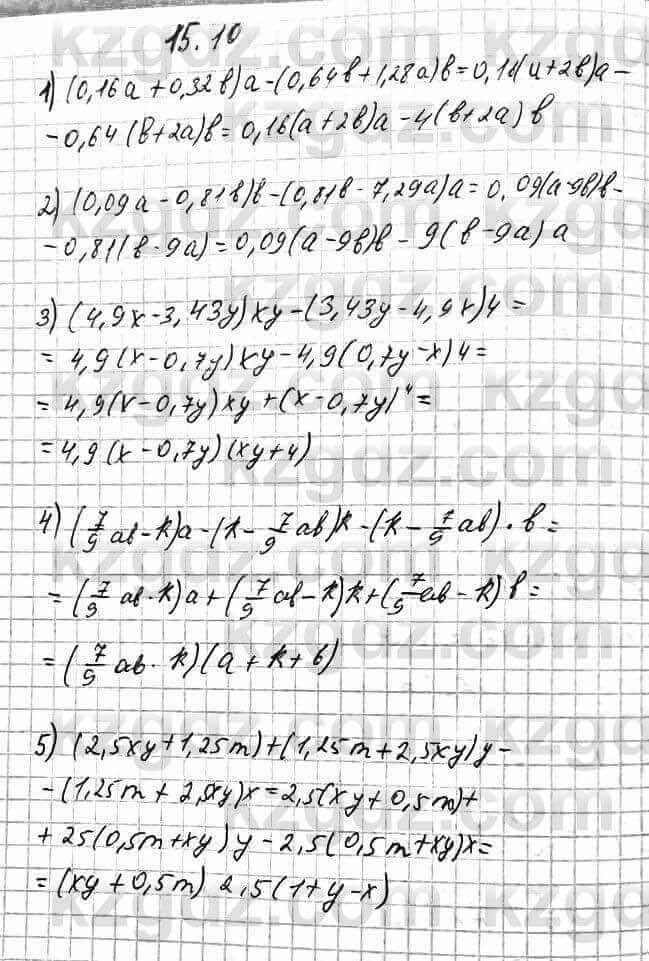 15.10
1) (0,16a + 0,32в)a - (0,64в + 1,28a)в = 0,16(a+2в)a -
- 0,64 (в+2a)в = 0,16(a+2в)a - 4(в+2a) в
2) (0,09a - 0,81в)в - (0,81в - 7,29a)a = 0,09(a-9в)в -
- 0,81(в-9a) = 0,09(a-9в)в - 9(в-9a) a
3) (4,9x - 3,43y)xy - (3,43y - 4,9x)4 =
= 4,9(x-0,7y)xy - 4,9(0,7y-x)4 =
= 4,9(x-0,7y)xy + (x-0,7y)4 =
= 4,9(x-0,7y)(xy+4)
4) (7/9 aв - k)a - (k - 7/9 aв)k - (k - 7/9 aв) · в =
= (7/9 aв - k)a + (7/9 aв - k)k + (7/9 aв - k) в =
= (7/9 aв - k)(a + k + в)
5) (2,5xy + 1,25m) + (1,25m + 2,5xy)y -
- (1,25m + 2,5xy)x = 2,5(xy + 0,5m) +
+ 25(0,5m+xy)y - 2,5(0,5m+xy)x =
= (xy + 0,5m) 2,5(1+y-x)
kzgdz.com